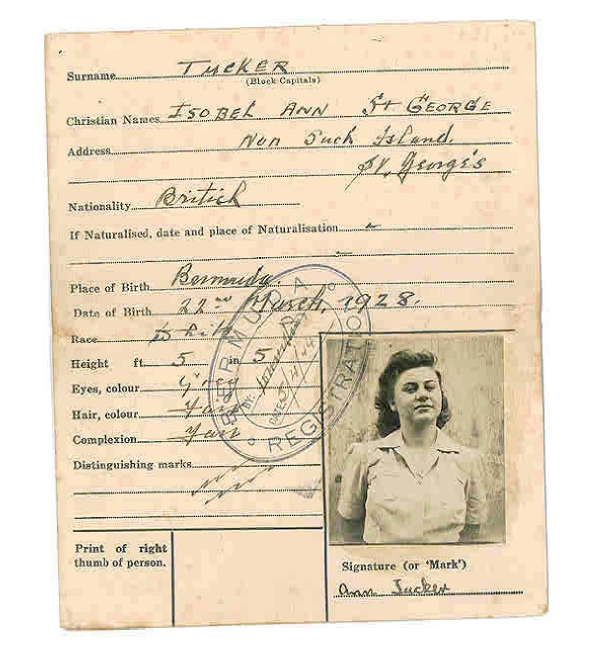 Surname TUCKER
(Block Capitals)
Christian Names ISOBEL ANN St GEORGE
Address Non Such Island.
St. George's
Nationality British
If Naturalised, date and place of Naturalisation -
-
Place of Birth Bermuda.
Date of Birth 22nd March, 1928.
Race
Height ft. 5 in 5
Eyes, colour
Hair, colour
Complexion Fair
Distinguishing marks
BERMUDA
REGISTRATION
BY:
DATE
Print of right
thumb of person.
Signature (or 'Mark')
Ann Tucker